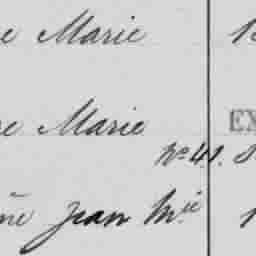 e Marie
e Marie EX
No 41.
ne Jean Mie